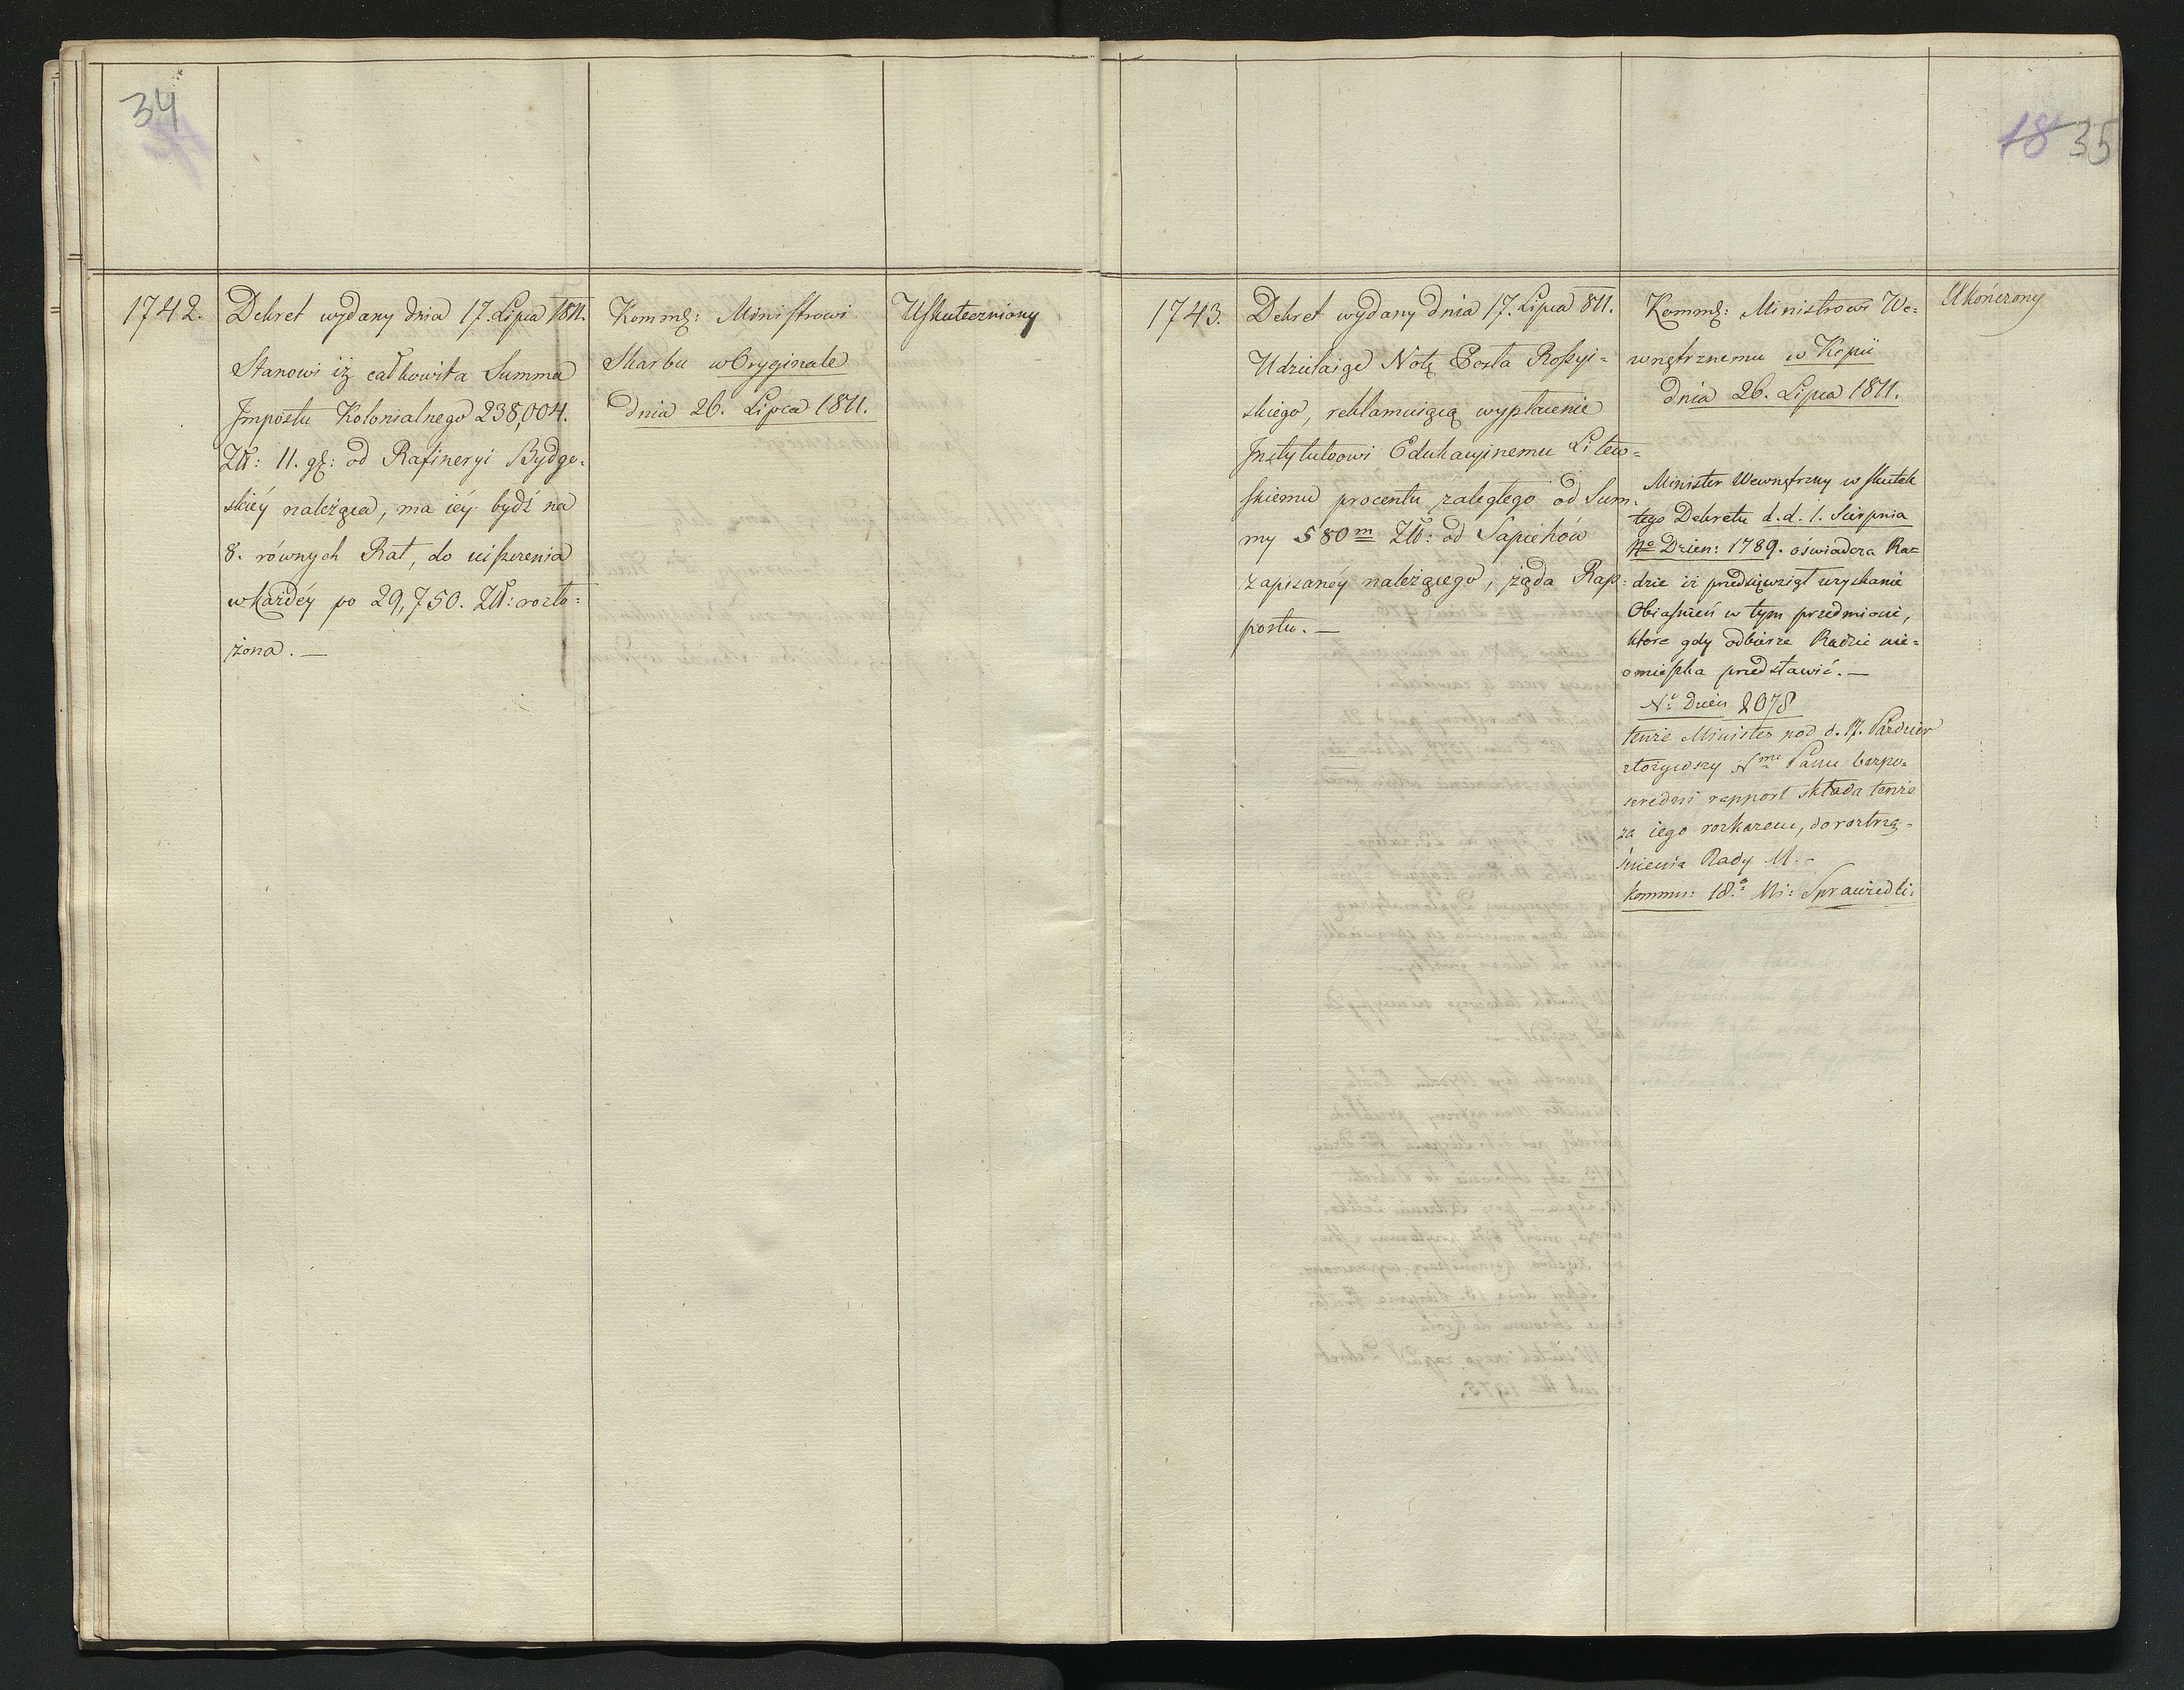 34
1742.
Dekret wydany dnia 17. Lipca 1811.
Stanowi iż całkowita Summa
Impostu Kolonialnego 238,004.
Złł: 11. gr: od Rafineryi Bydgo-
skiéy należąca, ma iéy bydź na
8. równych Rat, do uiszczenia
w każdéy po 29,750. Złł: rozło=
żona. —
Kommg: Ministrowi
Skarbu w Oryginale
dnia 26. Lipca 1811.
Uskuteczniony
18 35
1743.
Dekret wydany dnia 17. Lipca 811.
Udzielaiąc Notę Posła Rossyi=
skiego, reklamuiącą wypłacenie
Instytutowi Edukacyinemu Litew=
skiemu procentu zaległego od Sum-
my 580m Złł: od Sapiehów
zapisanéy należącego, żąda Rap=
portu. —
Kommg: Ministrowi We=
wnętrznemu w Kopii
dnia 26. Lipca 1811.
Minister Wewnętrzny w skutek
tego Dekretu d. d. 1. Sierpnia
No Dzien: 1789. oświadcza Ra=
dzie iż przedsięwziął uzyskanie
Obiaśnień w tym przedmiocie,
które gdy odbierze Radzie nie=
omieszka przedstawić. —
No Dzien 2078
tenże Minister pod d. 17. Paździer
złożywszy Nmu Panu bezpo=
średni rapport składa tenże
za iego rozkazem, do roztrzą=
śnienia Rady M. -
Kommu: 18.a Mi: Sprawiedli:
Ukończony